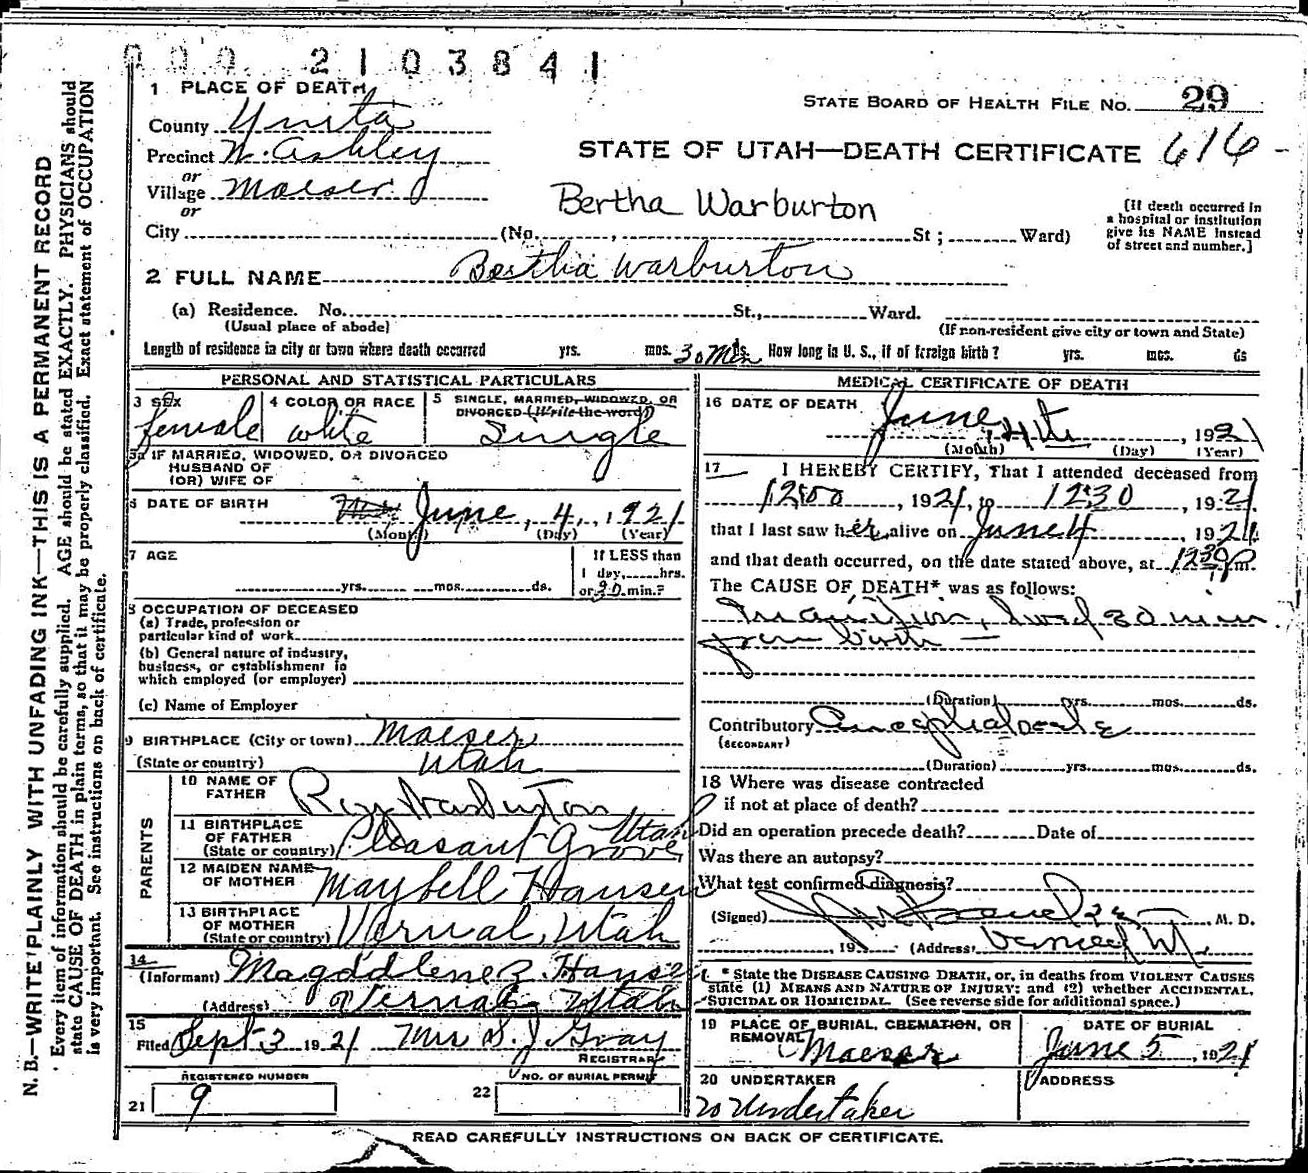 000 2103841
1 PLACE OF DEATH
STATE BOARD OF HEALTH FILE NO. 29
County Uinta
Precinct N. Ashley
STATE OF UTAH—DEATH CERTIFICATE 616-
or
Village Maeser
or
Bertha Warburton
[If death occurred in
a hospital or institution
give its NAME instead
of street and number.]
City (No. , St ; Ward)
2 FULL NAME Bertha Warburton
(a) Residence. No. St., Ward.
(Usual place of abode) (If non-resident give city or town and State)
Length of residence in city or town where death occurred yrs. mos. 30 Min ds. How long in U. S., if of foreign birth? yrs. mos. ds
PERSONAL AND STATISTICAL PARTICULARS
3 SEX 4 COLOR OR RACE 5 SINGLE, MARRIED, WIDOWED, OR
DIVORCED (Write the word)
female white Single
5a IF MARRIED, WIDOWED, OR DIVORCED
HUSBAND OF
(OR) WIFE OF
6 DATE OF BIRTH June, 4, 1921
(Month) (Day) (Year)
7 AGE If LESS than
yrs. mos. ds. 1 day, hrs.
or 30 min.?
8 OCCUPATION OF DECEASED
(a) Trade, profession or
particular kind of work
(b) General nature of industry,
business, or establishment in
which employed (or employer)
(c) Name of Employer
9 BIRTHPLACE (City or town) Maeser
(State or country) Utah
PARENTS
10 NAME OF
FATHER Roy Warburton
11 BIRTHPLACE
OF FATHER
(State or country) Pleasant Grove, Utah
12 MAIDEN NAME
OF MOTHER Maybell Hansen
13 BIRTHPLACE
OF MOTHER
(State or country) Vernal, Utah
14
(Informant) Magddlene Z. Hansen
(Address) Vernal, Utah
15
Filed Sept 3 1921 Mrs S. J. Gray
REGISTRAR
REGISTERED NUMBER NO. OF BURIAL PERMIT
21 9 22
MEDICAL CERTIFICATE OF DEATH
16 DATE OF DEATH June, 4th, 1921
(Month) (Day) (Year)
17 I HEREBY CERTIFY, That I attended deceased from
1200, 1921, to 1230, 1921
that I last saw her alive on June 4, 1921
and that death occurred, on the date stated above, at 1230 Pm.
The CAUSE OF DEATH* was as follows:
Inanition, lived 30 min
from birth —
(Duration) yrs. mos. ds.
Contributory
(SECONDARY)
(Duration) yrs. mos. ds.
18 Where was disease contracted
if not at place of death?
Did an operation precede death? Date of
Was there an autopsy?
What test confirmed diagnosis?
(Signed) M. D.
, 19 (Address) Vernal Ut.
* State the DISEASE CAUSING DEATH, or, in deaths from VIOLENT CAUSES
state (1) MEANS AND NATURE OF INJURY; and (2) whether ACCIDENTAL,
SUICIDAL OR HOMICIDAL. (See reverse side for additional space.)
19 PLACE OF BURIAL, CREMATION, OR
REMOVAL Maeser
DATE OF BURIAL
June 5, 1921
20 UNDERTAKER
no Undertaker
ADDRESS
READ CAREFULLY INSTRUCTIONS ON BACK OF CERTIFICATE.
N. B.—WRITE PLAINLY WITH UNFADING INK—THIS IS A PERMANENT RECORD
Every item of information should be carefully supplied. AGE should be stated EXACTLY. PHYSICIANS should
state CAUSE OF DEATH in plain terms, so that it may be properly classified. Exact statement of OCCUPATION
is very important. See instructions on back of certificate.